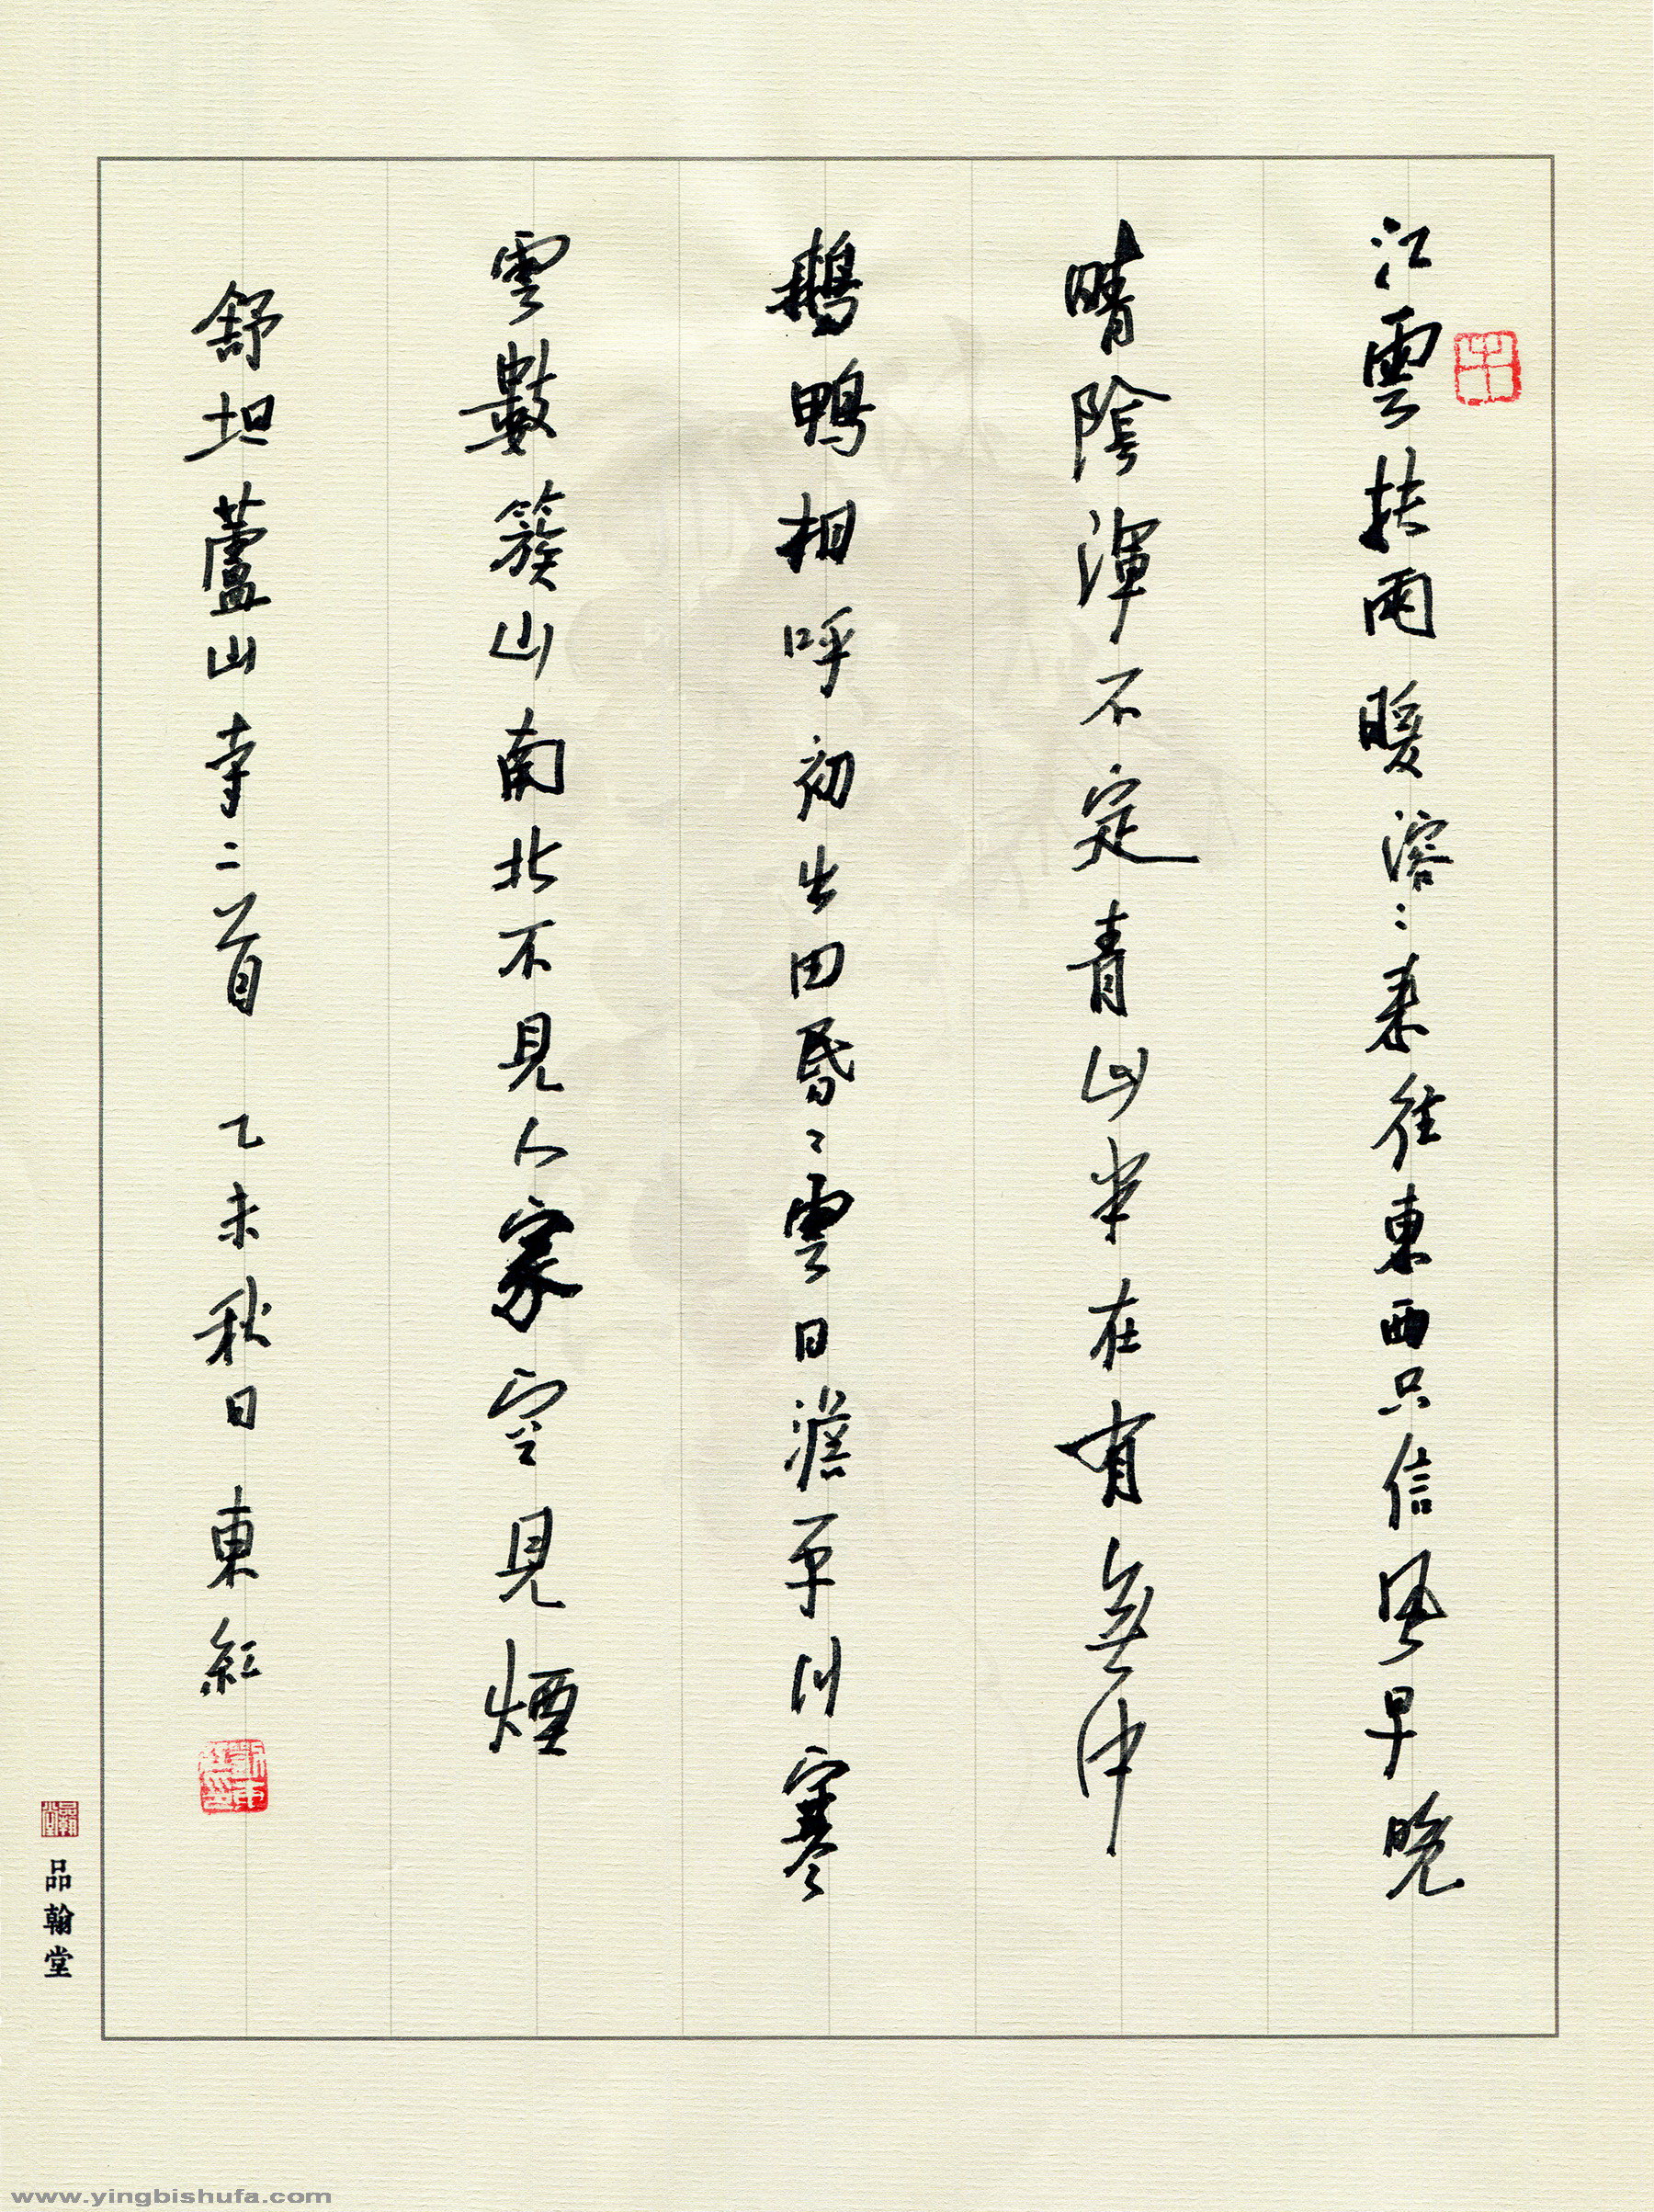 江雲扶雨暖溶〻来往東西只信風早晚
晴陰渾不定青山半在有無中
鵝鴨相呼初出田昏〻雲日澹平川寒
雲數簇山南北不見人家空見煙
舒坦蘆山寺二首 乙未秋日 東紅
品翰堂
www.yingbishufa.com